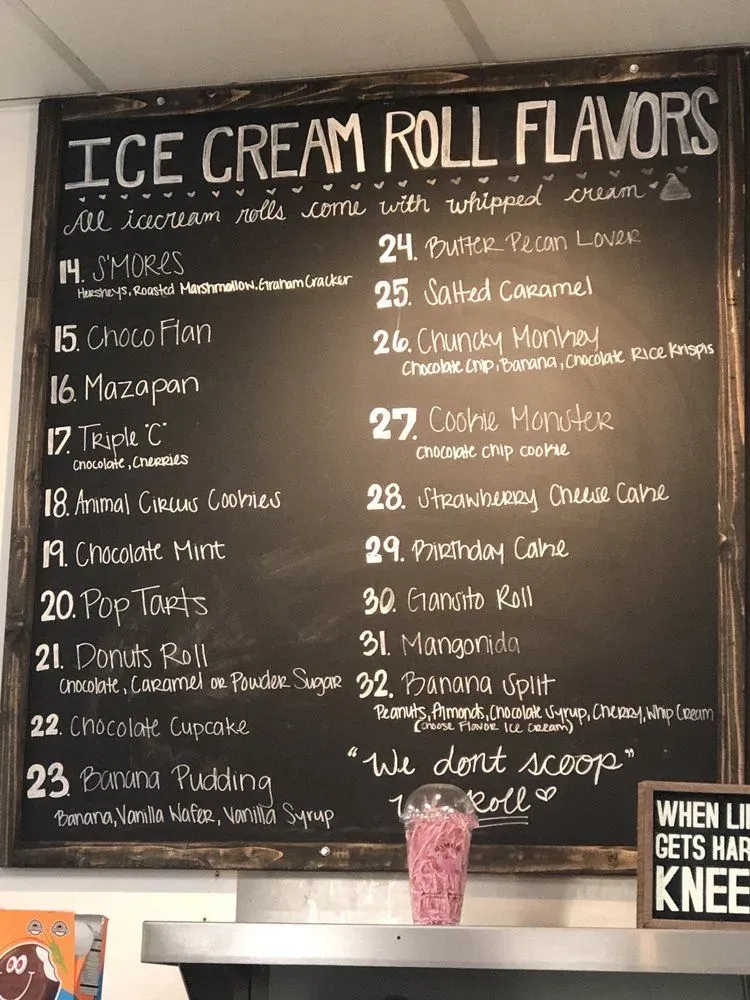 ICE CREAM ROLL FLAVORS
All icecream rolls come with whipped cream
14. S'MORES
Hersheys, Roasted Marshmallow, Graham Cracker
15. Choco Flan
16. Mazapan
17. Triple "C"
Chocolate, Cherries
18. Animal Circus Cookies
19. Chocolate Mint
20. Pop Tarts
21. Donuts Roll
Chocolate, Caramel or Powder Sugar
22. Chocolate Cupcake
23. Banana Pudding
Banana, Vanilla Wafer, Vanilla Syrup
24. Butter Pecan Lover
25. Salted Caramel
26. Chuncky Monkey
Chocolate Chip, Banana, Chocolate Rice Krispis
27. Cookie Monster
Chocolate chip cookie
28. Strawberry Cheese Cake
29. Birthday Cake
30. Gansito Roll
31. Mangonida
32. Banana Split
Peanuts, Almonds, Chocolate Syrup, Cherry, Whip Cream
(Choose Flavor Ice Cream)
"We dont scoop"
Roll
WHEN LI
GETS HAR
KNEE